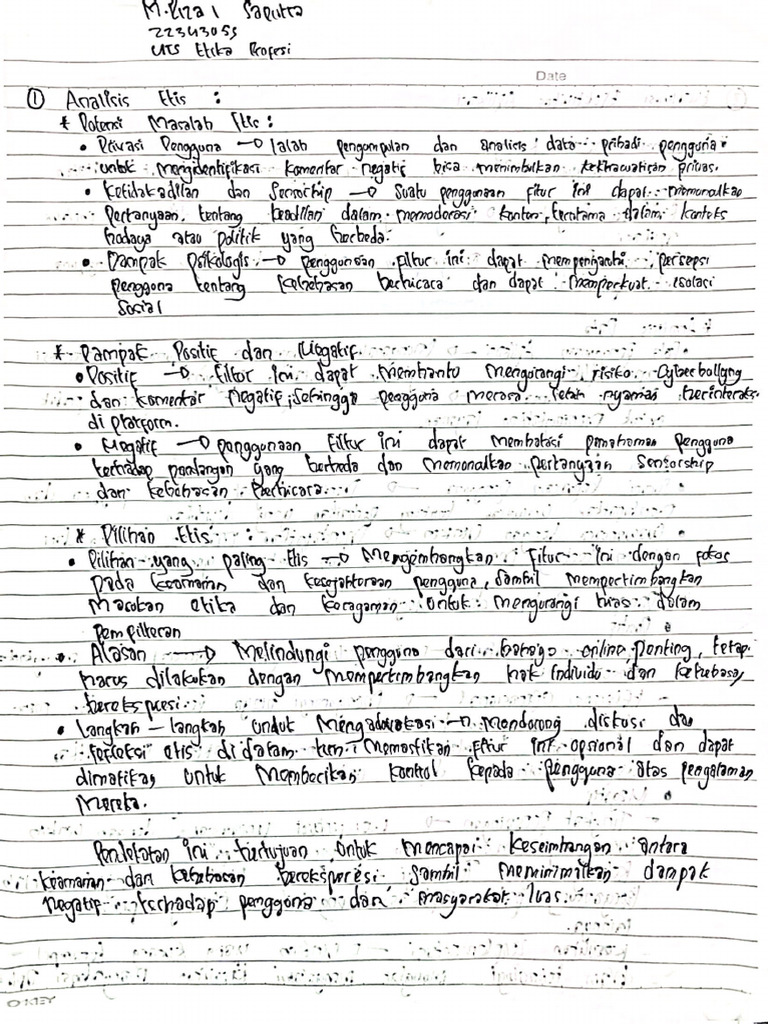 M. Rizal Saputra
22343055
UTS Etika Profesi
Date
① Analisis Etis :
* Potensi Masalah Etis :
• Privasi Pengguna → Ialah pengumpulan dan analisis data pribadi pengguna
untuk mengidentifikasi komentar negatif bisa menimbulkan kekhawatiran privasi.
• Ketidakadilan dan Sensorship → Suatu penggunaan fitur ini dapat memunculkan
Pertanyaan tentang keadilan dalam memoderasi konten, terutama dalam konteks
budaya atau politik yang berbeda.
• Dampak Psikologis → penggunaan fitur ini dapat mempengaruhi persepsi
pengguna tentang kebebasan berbicara dan dapat memperkuat isolasi
Sosial
* Dampak Positif dan Negatif.
• Positif → Fitur ini dapat membantu mengurangi risiko Cyberbullying
dan komentar negatif, sehingga pengguna merasa lebih nyaman berinteraksi
di platform.
• Negatif → penggunaan fitur ini dapat membatasi pemahaman pengguna
terhadap pandangan yang berbeda dan memunculkan pertanyaan Sensorship
dan kebebasan berbicara.
* Pilihan Etis
• Pilihan yang paling etis → Mengembangkan fitur ini dengan fokus
pada keamanan dan kesejahteraan pengguna, sambil mempertimbangkan
Masukan etika dan keragaman untuk mengurangi bias dalam
pemfilteran
• Alasan → Melindungi pengguna dari bahaya online penting, tetapi
harus dilakukan dengan mempertimbangkan hak individu dan kebebasan
berekspresi
• Langkah - langkah untuk Mengadvokasi → Mendorong diskusi dan
refleksi etis di dalam tim, memastikan fitur ini opsional dan dapat
dimatikan untuk memberikan kontrol kepada pengguna atas pengalaman
Mereka.
Pendekatan ini bertujuan untuk mencapai keseimbangan antara
keamanan dan kebebasan berekspresi sambil meminimalkan dampak
negatif terhadap pengguna dan masyarakat luas.
OKEY